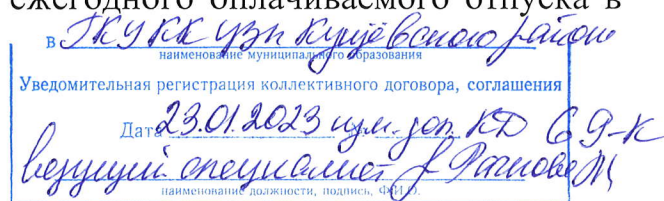 ежегодного оплачиваемого отпуска в
в ГКУ КК ЦЗН Кущёвского района
наименование муниципального образования
Уведомительная регистрация коллективного договора, соглашения
Дата 23.01.2023 изм. доп. КД 69-К
ведущий специалист
наименование должности, подпись, Ф.И.О.